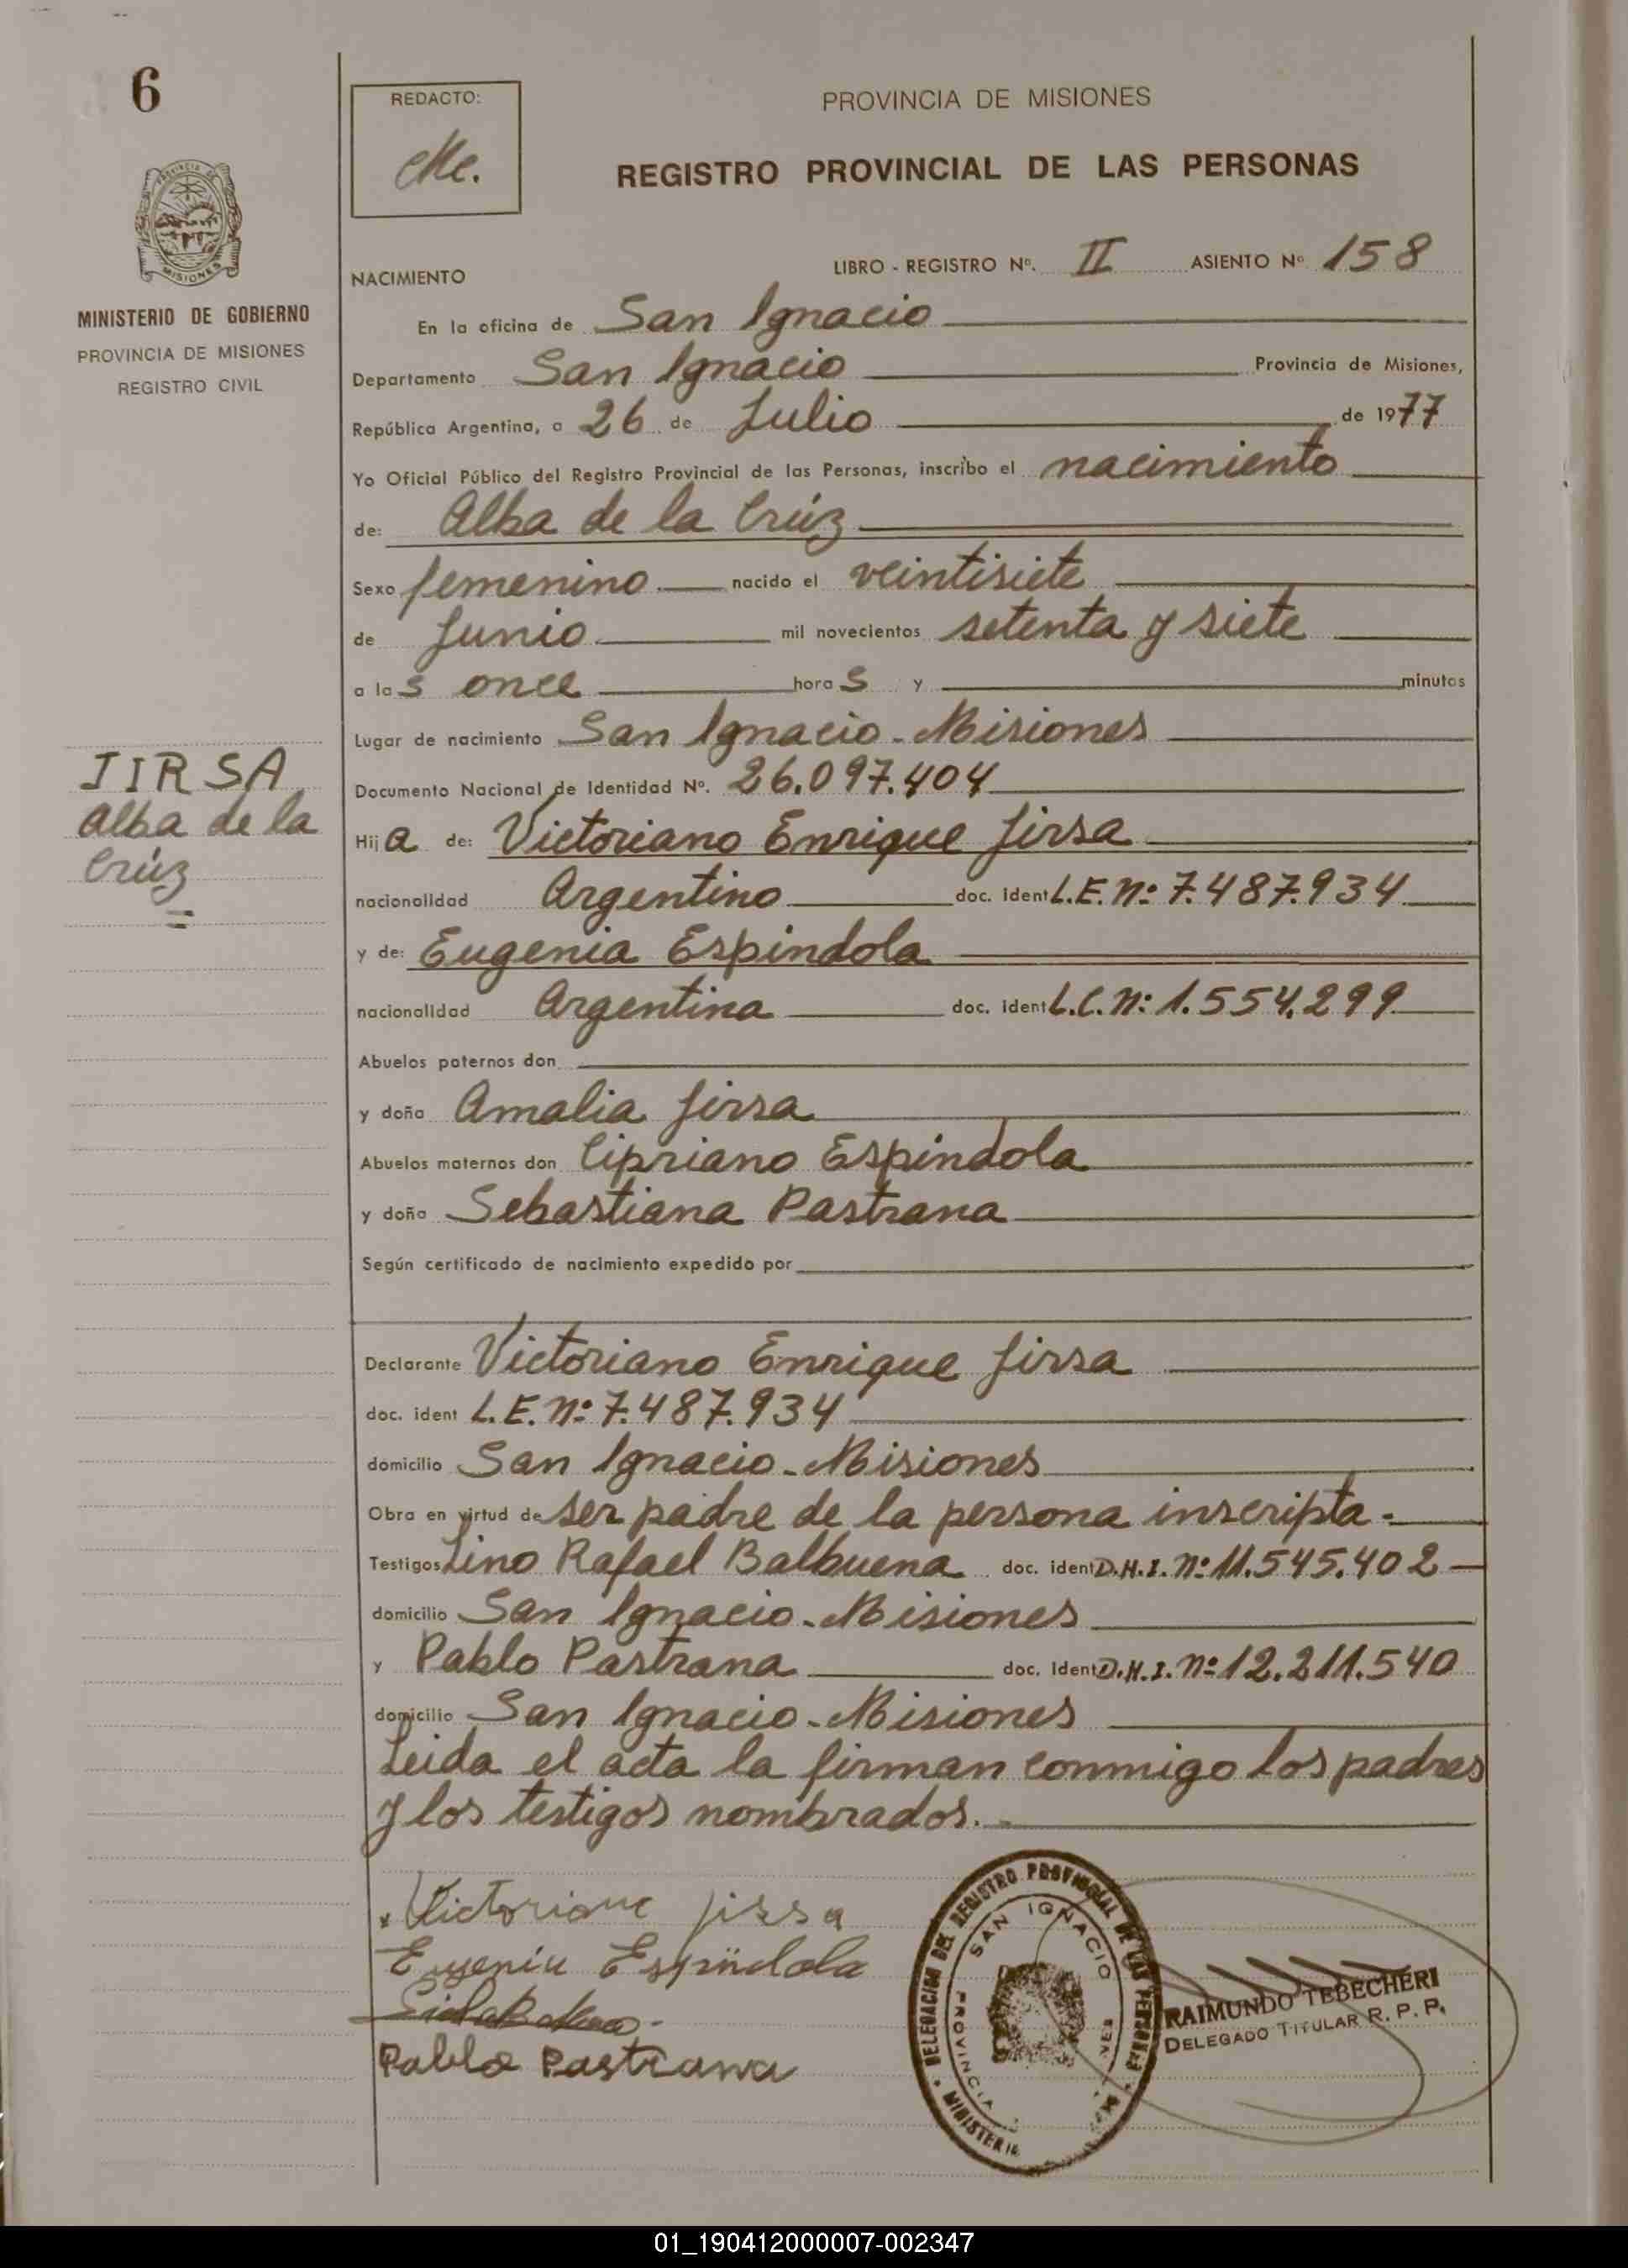 6
REDACTO:
Me.
PROVINCIA DE MISIONES
REGISTRO PROVINCIAL DE LAS PERSONAS
PROVINCIA DE
MISIONES
MINISTERIO DE GOBIERNO
PROVINCIA DE MISIONES
REGISTRO CIVIL
NACIMIENTO
LIBRO - REGISTRO Nº. II ASIENTO Nº 158
En la oficina de San Ignacio
Departamento San Ignacio Provincia de Misiones,
República Argentina, a 26 de Julio de 1977
Yo Oficial Público del Registro Provincial de las Personas, inscribo el nacimiento
de: Alba de la Crúz
Sexo femenino. nacido el veintisiete
de Junio mil novecientos setenta y siete
a las once horas y minutos
Lugar de nacimiento San Ignacio - Misiones
Documento Nacional de Identidad Nº. 26.097.404
JIRSA
Alba de la
Crúz
Hija de: Victoriano Enrique Jirsa
nacionalidad Argentino doc. ident L.E. Nº 7.487.934
y de: Eugenia Espindola
nacionalidad Argentina doc. ident L.C. Nº 1.554.299
Abuelos paternos don
y doña Amalia Jirsa
Abuelos maternos don Cipriano Espindola
y doña Sebastiana Pastrana
Según certificado de nacimiento expedido por
Declarante Victoriano Enrique Jirsa
doc. ident L.E. Nº 7.487.934
domicilio San Ignacio - Misiones
Obra en virtud de ser padre de la persona inscripta.
Testigos Lino Rafael Balbuena doc. ident D.N.I. Nº 11.545.402
domicilio San Ignacio - Misiones
y Pablo Pastrana doc. ident D.N.I. Nº 12.211.540
domicilio San Ignacio - Misiones
Leida el acta la firman conmigo los padres
y los testigos nombrados.
Victoriano Jirsa
Eugenia Espindola
Pablo Pastrana
DELEGACION DEL REGISTRO PROVINCIAL DE LAS PERSONAS
SAN IGNACIO
PROVINCIA
MINISTERIO
RAIMUNDO TEBECHERI
DELEGADO TITULAR R. P. P.
01_190412000007-002347